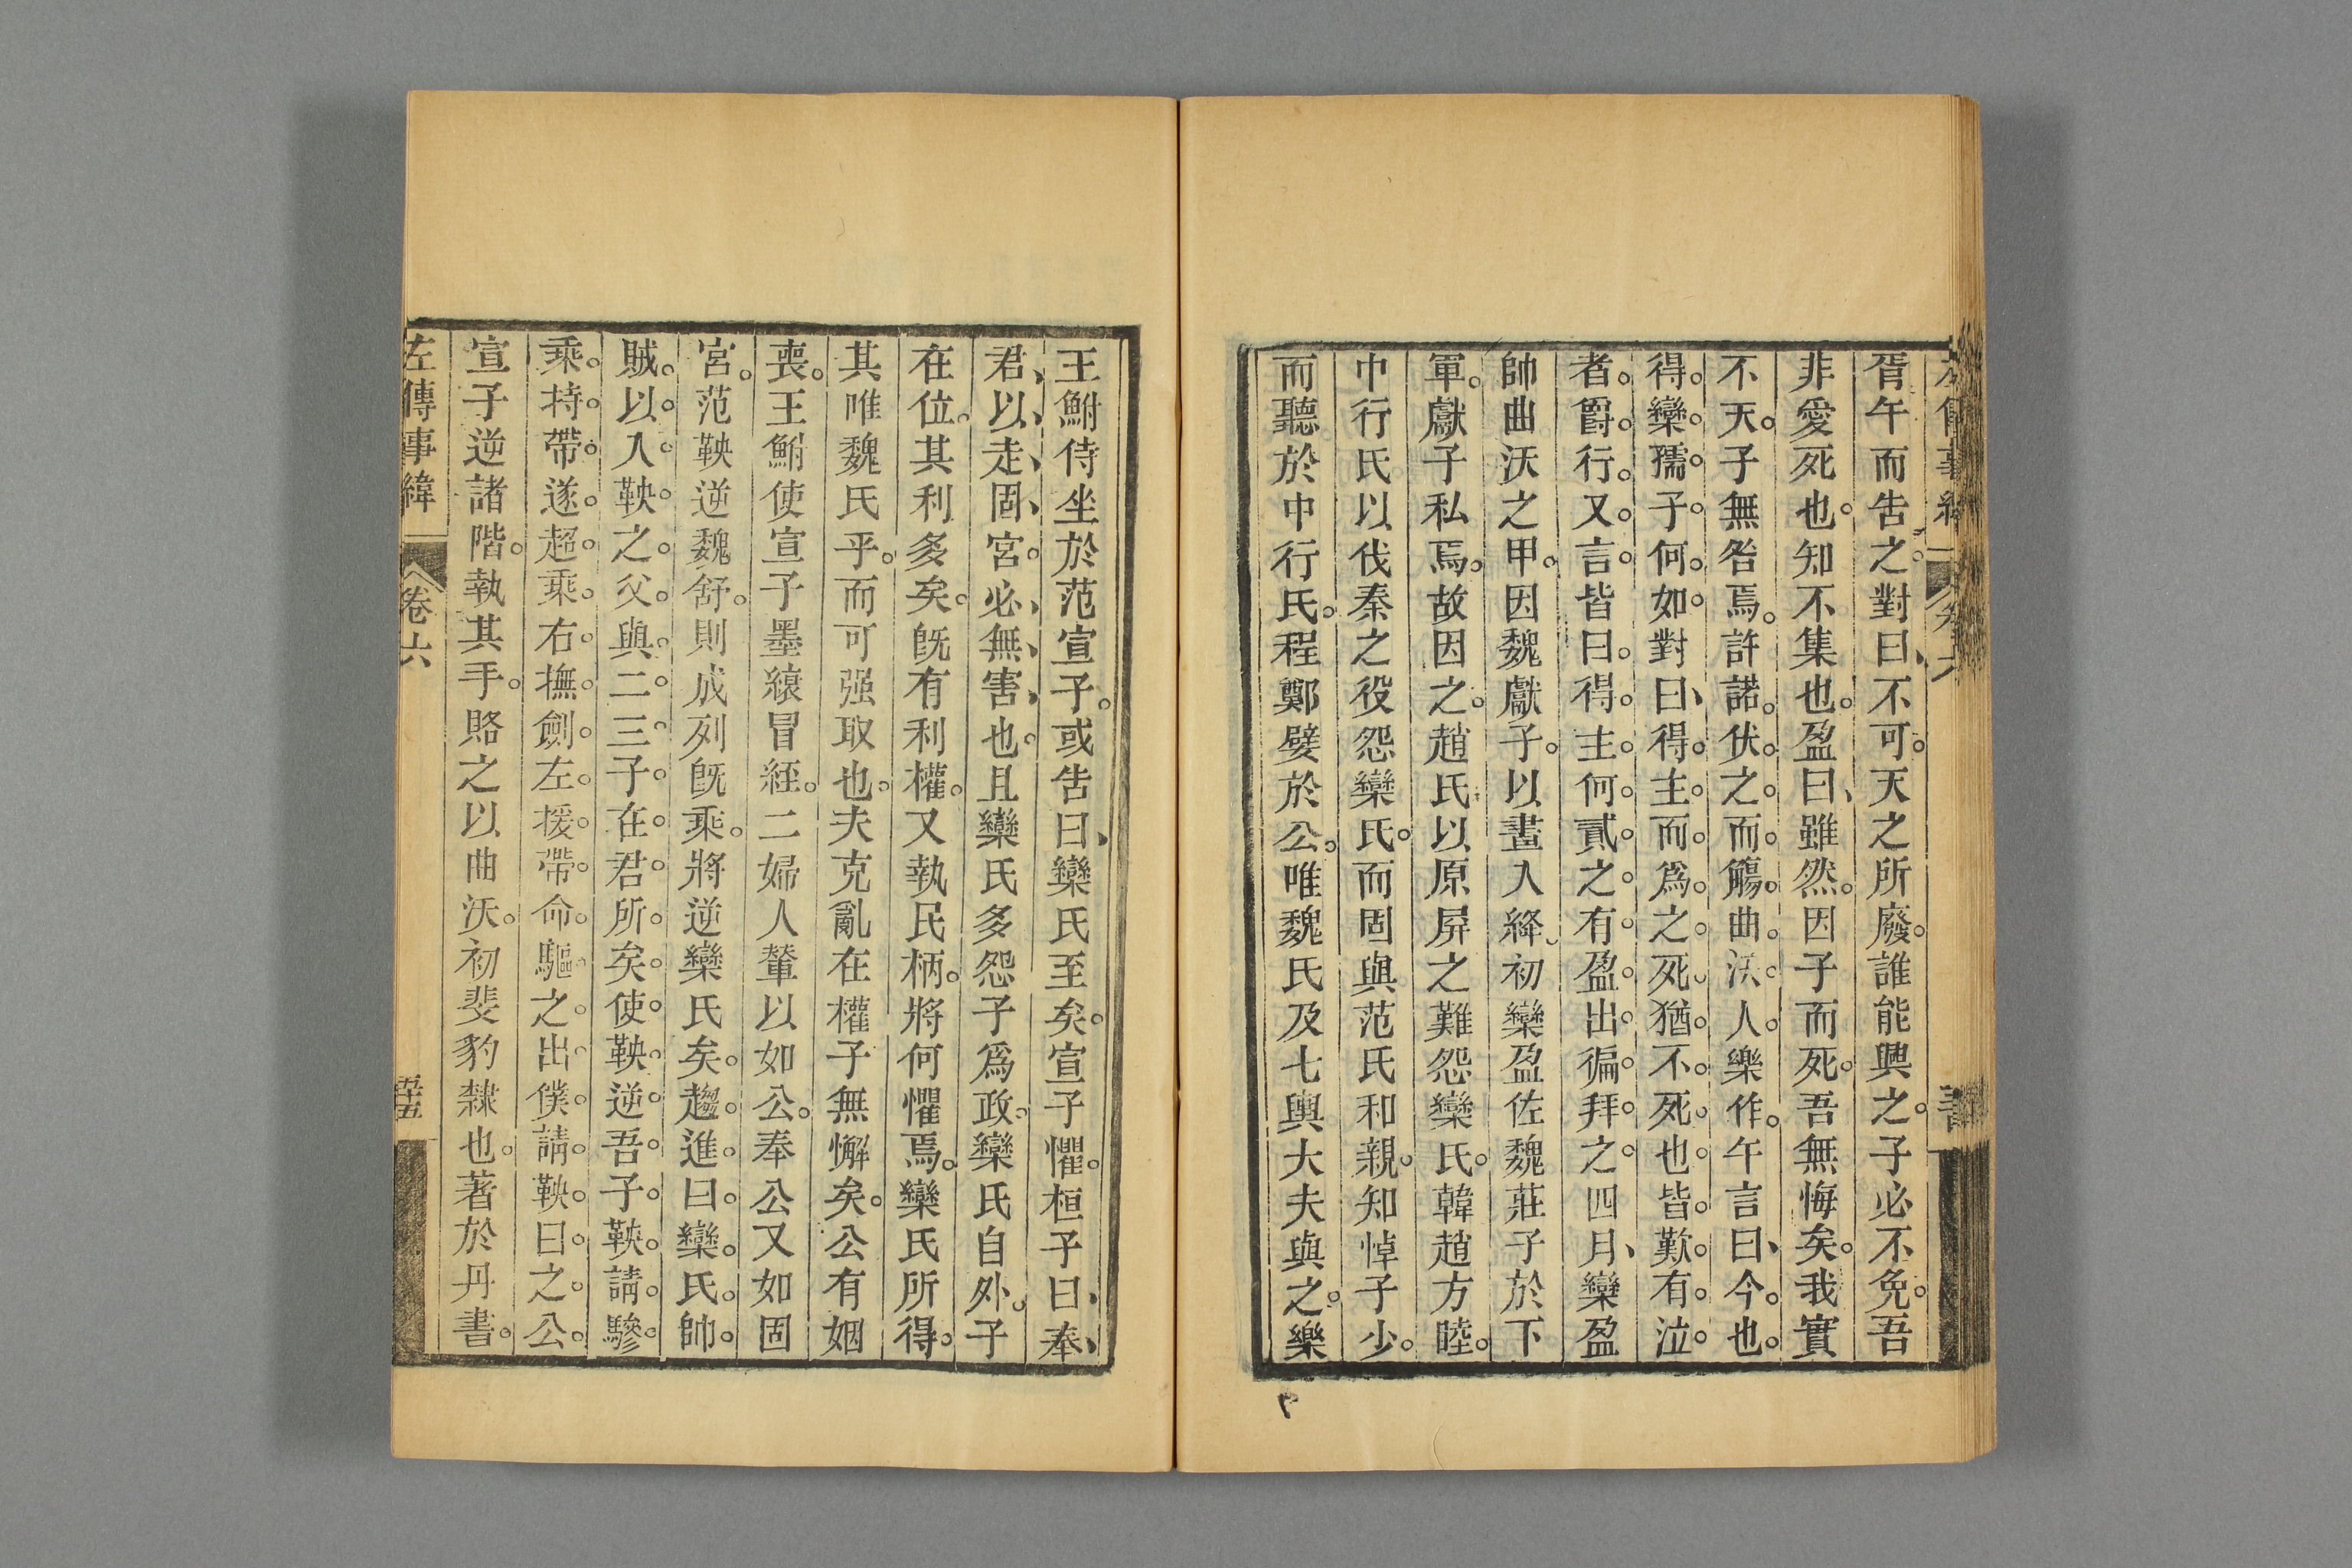 胥午而告之。對曰、不可。天之所廢。誰能興之。子必不免。吾
非愛死也。知不集也。盈曰、雖然。因子而死。吾無悔矣。我實
不天。子無咎焉。許諾。伏之。而觴。曲。沃。人。樂作。午言曰、今。也。
得。欒。孺。子。何。如。對曰、得。主。而。爲。之。死。猶。不。死。也。皆。歎。有。泣。
者。爵。行。又。言。皆曰。得。主。何。貳。之。有。盈。出。徧。拜。之。四月、欒盈
帥曲沃之甲。因魏獻子。以晝入絳。初欒盈佐魏莊子於下
軍。獻子私焉。故因之。趙氏以原屏之難怨欒氏。韓趙方睦。
中行氏以伐秦之役怨欒氏。而固與范氏和親。知悼子少。
而聽於中行氏。程鄭嬖於公。唯魏氏及七輿大夫與之。樂
王鮒侍坐於范宣子。或告曰、欒氏至矣。宣子懼。桓子曰、奉、
君、以、走、固、宮。必、無、害、也。且欒氏多怨子爲政。欒氏自外。子
在位。其利多矣。既有利權。又執民柄。將何懼焉。欒氏所得。
其唯魏氏乎。而可强取也。夫克亂在權子無懈矣。公有姻
喪。王鮒使宣子墨縗冒絰。二婦人輦以如公。奉公又如固
宮。范鞅逆魏舒。則成列既乘。將逆欒氏矣。趨。進。曰。欒。氏。帥。
賊。以。入。鞅。之。父。與。二。三。子。在。君。所。矣。使。鞅。逆。吾。子。鞅。請。驂。
乘。持。帶。遂。超。乘。右。撫。劍。左。援。帶。命。驅。之。出。僕。請。鞅。曰。之。公。
宣子逆諸階。執其手。賂之以曲沃。初斐豹隸也。著於丹書。
左傳事緯 卷六 五十五